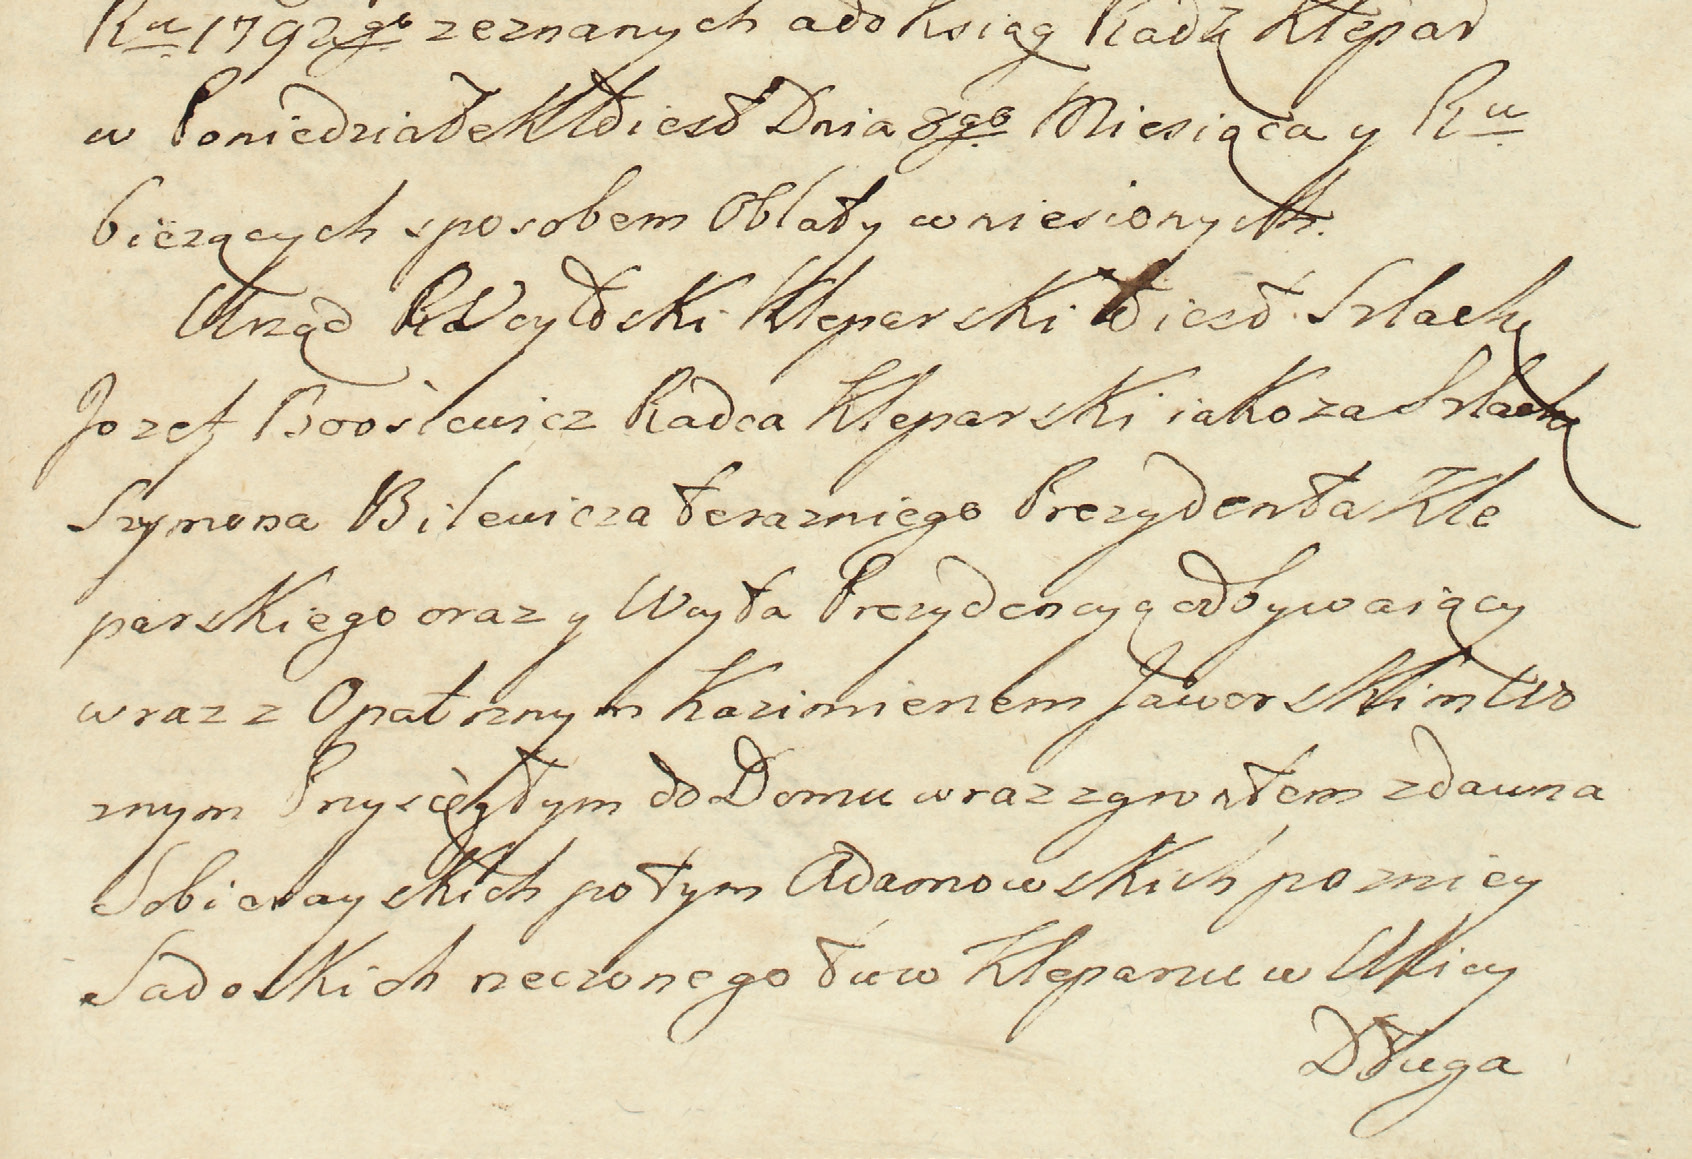 Ru 1792go zeznanych a do Ksiąg Radz Klepar
w Poniedziałek to iest Dnia 8go Miesiąca y Ru
bieżących sposobem Oblaty wniesionych.
Urząd Woytowski Kleparski to iest Szlach
Jozef Boosiewicz Radca Kleparski iako za Szlach
Szymona Bilewicza terazniego Prezydenta Kle
parskiego oraz y Woyta Prezydencyą odbywaiący
wraz z Opatrznym Kazimierzem Jaworskim Wo
znym Przysiężłym do Domu wraz z gruntem zdawna
Sobierayskich potym Adamowskich pozniey
Sadoskich rzeczonego tu w Kleparzu w Ulicy
Długa